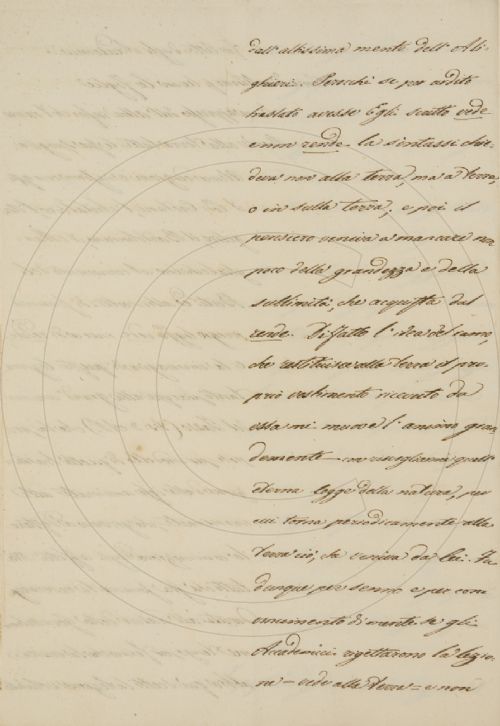 dall'altissima mente dell'Ali-
ghieri. Perochè se per ardito
traslato avesse Egli scritto vede
e non rende. la sintassi chie-
deva non alla terra, ma a terra,
o in sulla terra; e poi il
pensiero veniva a mancare non
poco della grandezza e della
sublimità, che acquista dal
rende. Difatto l'idea del ramo,
che restituisce alla terra il pro-
prio vestimento ricevuto da
essa mi muove l'animo gran
demente — con risvegliarmi quell'
eterna legge della natura, per
cui torna periodicamente alla
terra ciò, che veniva da lei. Fu
dunque per senno e per
di mente se gli
Accademici rigettarono la lezio-
ne — vede alla terra — e non